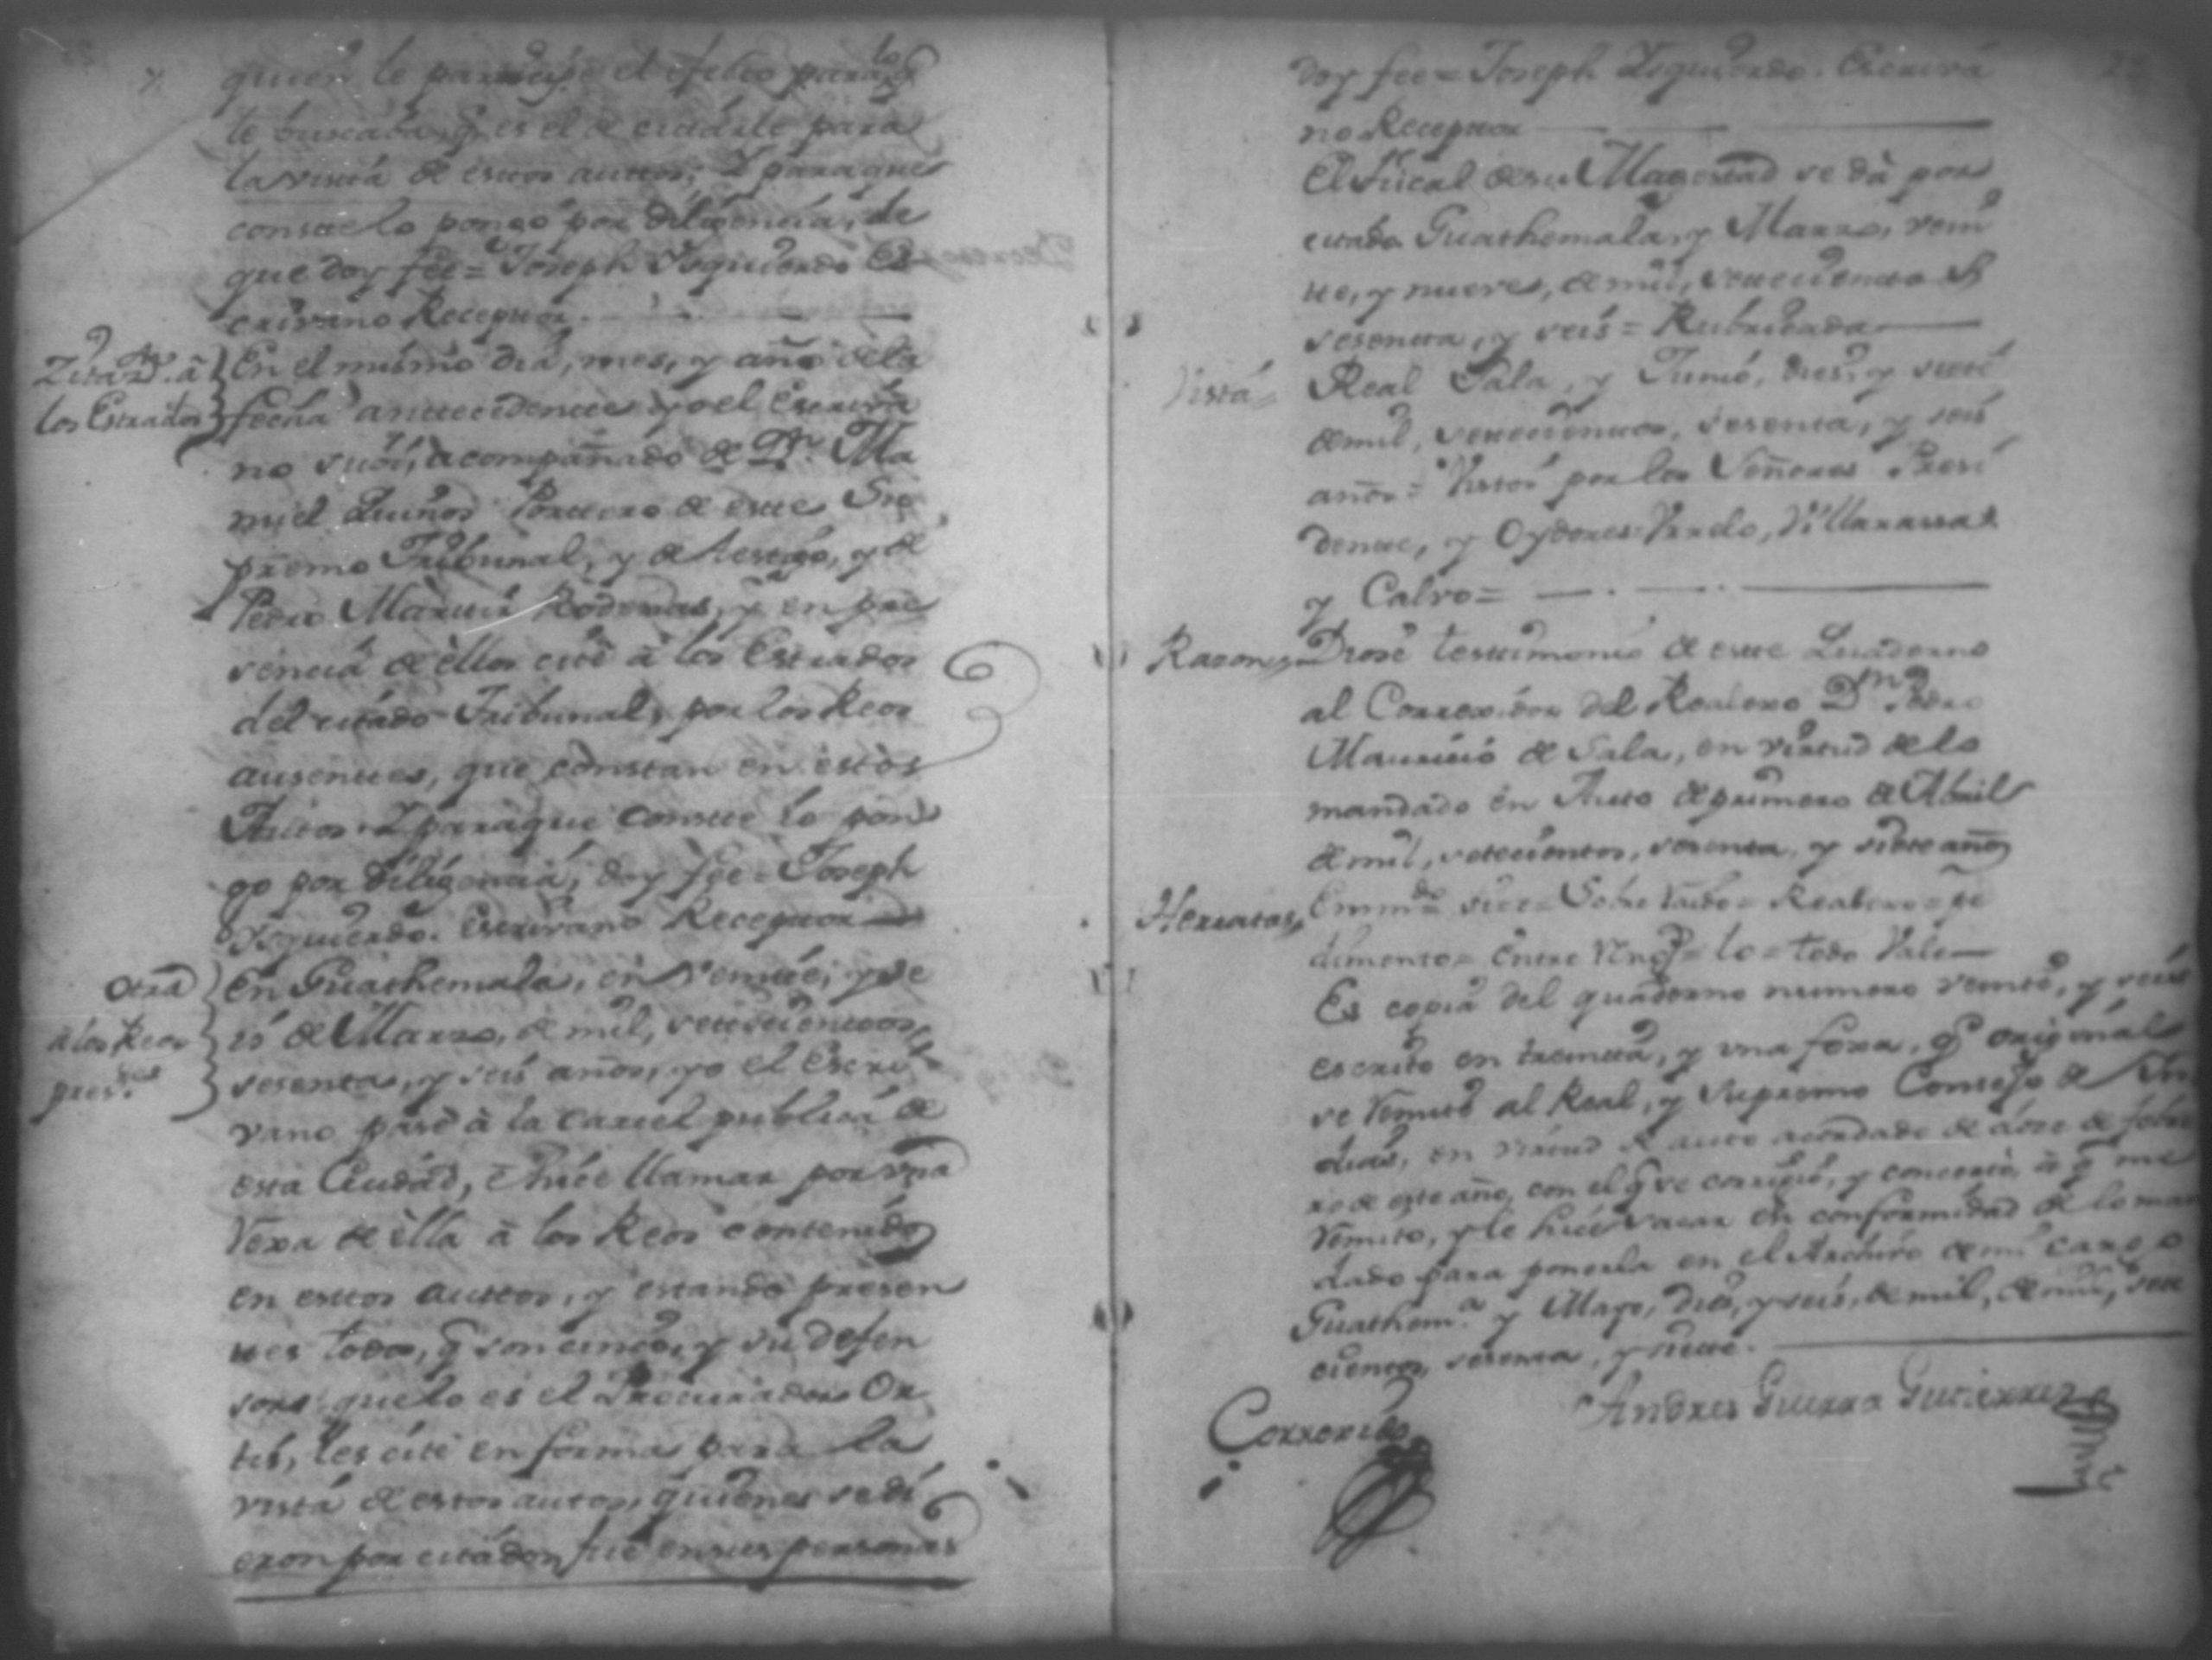 quien le participé el efecto para lo q̃
le buscaba, q̃ es el de citarle para
la vista de estos auttos; Y paraque
conste lo pongo por diligencia, de
que doy fee = Joseph Ysquierdo Es
crivano Receptor.
Zitaz.on â
los Estrados
En el mismo dia, mes, y año de la
fecha anttecedente yo el Escriva
no suso, acompañado de Dn. Ma
nuel Portero de este Su
premo Tribunal, y de testigo, y de
Pedro Martin Rodenas, y en pre
sencia de èllos cité â los Estrados
del citado Tribunal, por los Reos
ausentes, que constan en estos
Autos. Y paraque conste lo pon
go por diligencia, doy fee = Joseph
Ysquierdo. Escrivano Receptor
Otra
a los Reos
pres.tes
En Guathemala, en veinte, y se
is de Marzo, de mil, settecientos,
sesenta, y seis años, yo el Escri
vano pasé à la carcel publica de
esta Ciudad, è hice llamar por vna
Rexa de èlla â los Reos contenidos
en esttos auttos, y estando presen
tes todos, q̃ son cinco, y su defen
sor que lo es el Procurador Or
tis, les cité en forma para la
vista de estos autos, quienes se di
eron por citados, fue en sus personas
doy fee = Joseph Ysquierdo. Escriva
no Receptor
El Fiscal de su Magestad se dà por
citado Guathemala, y Marzo, vein
te, y nueve, de mil, settecientos
sesenta, y seis = Rubricada
Vista =
Real Sala, y Junio, dies, y siete
de mil, settecientos, sesenta, y seis
años = Vistos por los Señores Presi
dente, y Oydores Varelo, Villarrasa
y Calvo =
Razon,
Diose testimonio de este Quaderno
al Corregidor del Realexo Dn. Pedro
Mauricio de Sala, en virtud de lo
mandado en Auto de primero de Abril
de mil, setecientos, sesenta, y siete años
Herratas,
Emm.do = = Sobre raido = Realexo = pe
dimento = Entre Rng.s = lo = todo Vale
Es copia del quaderno numero veinte, y seis
escrito en treinta, y vna foxa, q̃ original
se remite al Real, y Supremo Consejo de Yn
dias, en virtud de auto acordado de doze de febre
ro de este año, con el q̃ se corrigió, y concertó, â q̃ me
remito, y le hice sacar en conformidad de lo man
dado para ponerla en el Archivo de mi cargo
Guathem.a y Mayo, dies, y seis, de mil, de mil, sete
cientos, sesenta, y siete.
Correxido
Andres Guerra Gutierrez